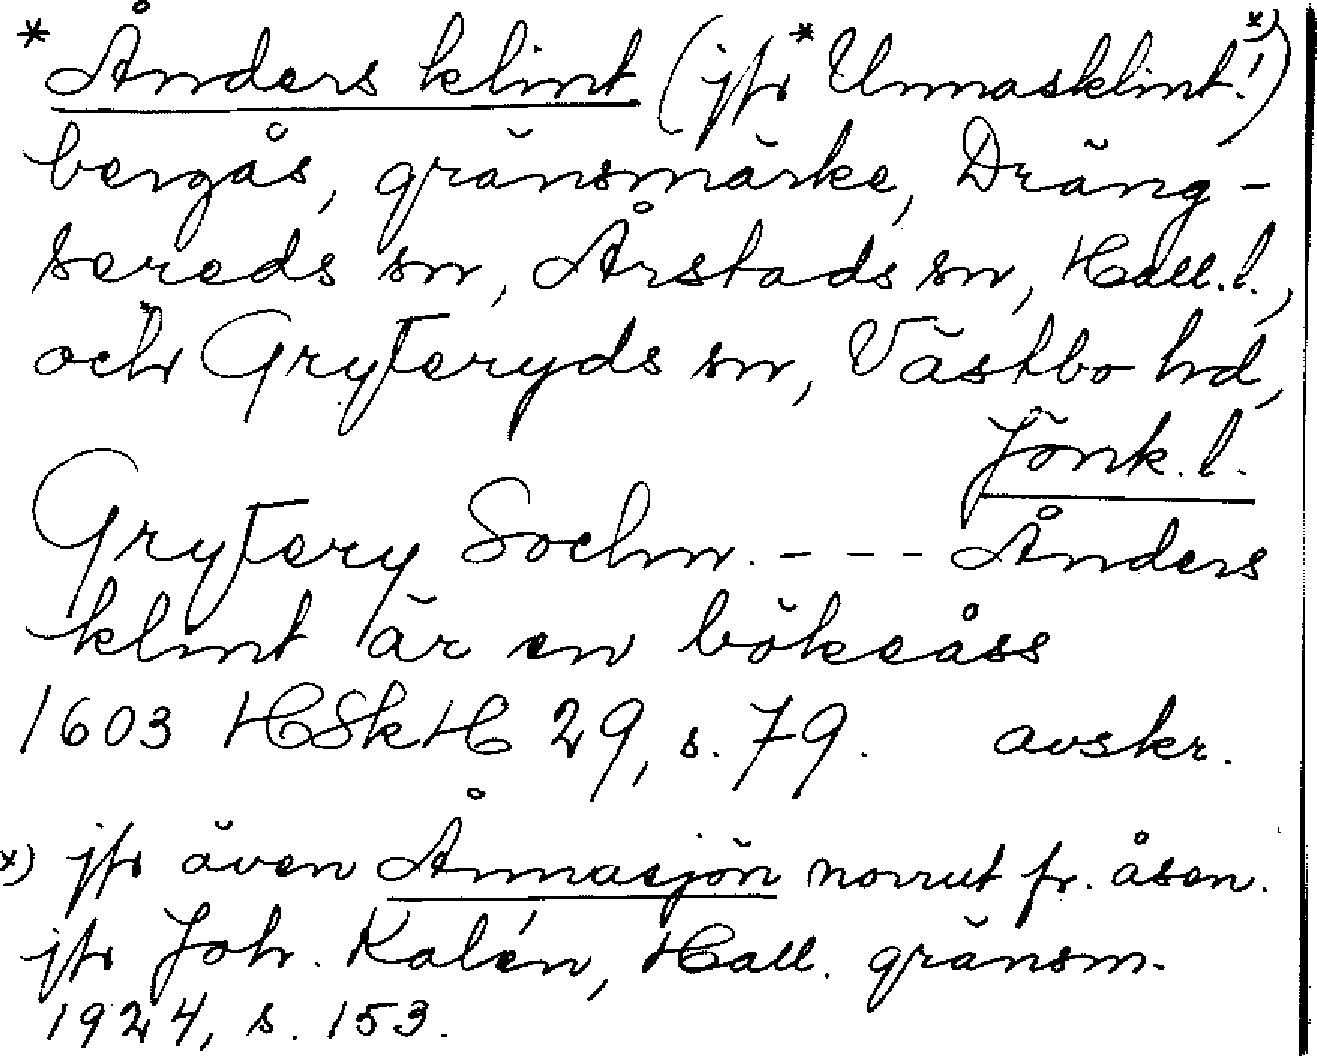 * Ånders klint (jfr * Unnasklint! x))
bergås, gränsmärke, Dräng-
sereds sn, Årstads sn, Hall. l.,
och Gryteryds sn, Västbo hd,
Jönk. l.
Grytery Sochn. - - - Ånders
klint är en bökeåss
1603 HSkH 29, s. 79. avskr.
x) jfr även Ånnasjön norrut fr. åsen.
jfr Joh. Kalén, Hall. gränsm.
1924, s. 153.